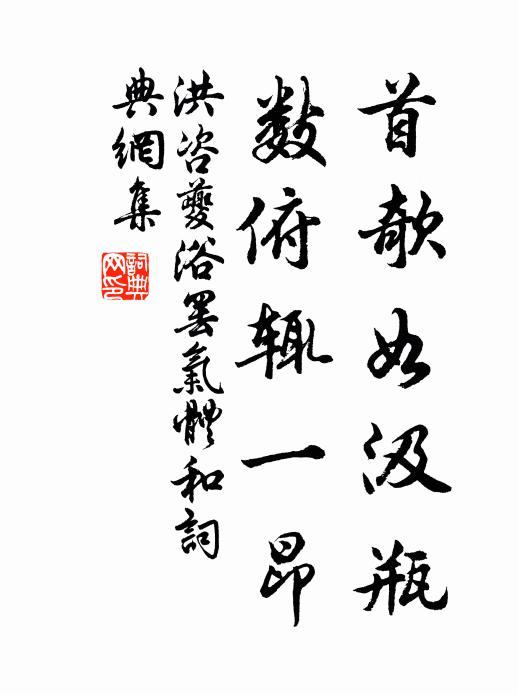 首欹如汲瓶
數俯輒一昂
洪咨夔浴罢氣體和詞
典網集
詞典
网印